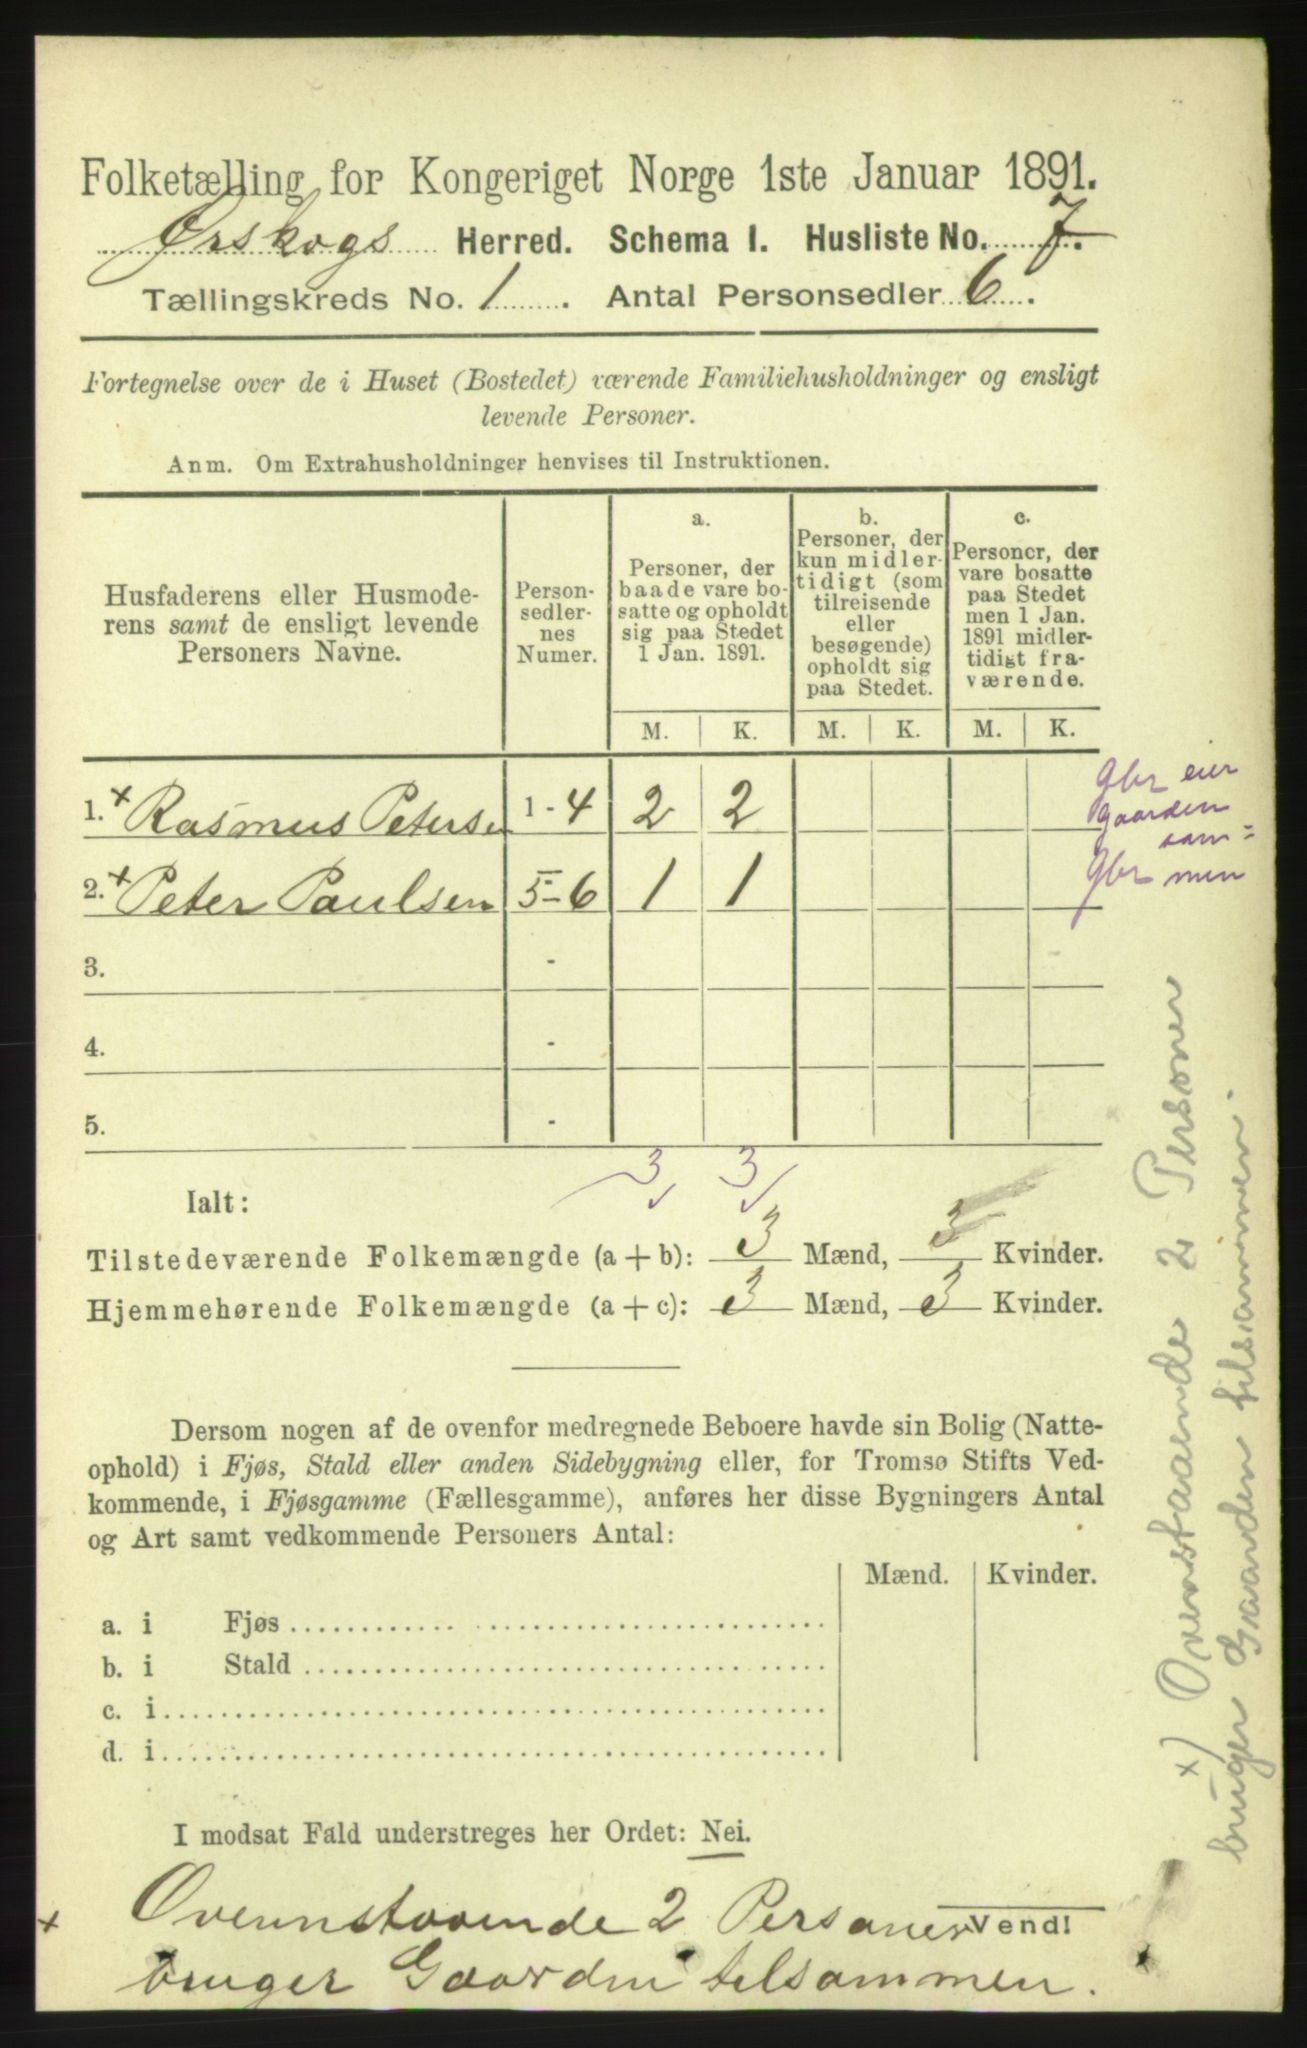 Folketælling for Kongeriget Norge 1ste Januar 1891.
Ørskogs Herred. Schema I. Husliste No. 7.
Tællingskreds No. 1. Antal Personsedler 6.
Fortegnelse over de i Huset (Bostedet) værende Familiehusholdninger og ensligt
levende Personer.
Anm. Om Extrahusholdninger henvises til Instruktionen.
Husfaderens eller Husmode-
rens samt de ensligt levende
Personers Navne.
Person-
sedler-
nes
Numer.
a.
Personer, der
baade vare bo-
satte og opholdt
sig paa Stedet
1 Jan. 1891.
b.
Personer, der
kun midler-
tidigt (som
tilreisende
eller
besøgende)
opholdt sig
paa Stedet.
c.
Personer, der
vare bosatte
paa Stedet
men 1 Jan.
1891 midler-
tidigt fra-
værende.
M. K. M. K. M. K.
1. x Rasmus Petersen 1 - 4 2 2
2. x Peter Paulsen 5 - 6 1 1
3. -
4. -
5. -
Gbr eier
gaarden
sam=
Gbr men
3 3
Ialt:
Tilstedeværende Folkemængde (a + b): 3 Mænd, 3 Kvinder.
Hjemmehørende Folkemængde (a + c): 3 Mænd, 3 Kvinder.
Dersom nogen af de ovenfor medregnede Beboere havde sin Bolig (Natte-
ophold) i Fjøs, Stald eller anden Sidebygning eller, for Tromsø Stifts Ved-
kommende, i Fjøsgamme (Fællesgamme), anføres her disse Bygningers Antal
og Art samt vedkommende Personers Antal:
Mænd. Kvinder.
a. i Fjøs
b. i Stald
c. i
d. i
I modsat Fald understreges her Ordet: Nei.
Vend!
x Ovennstaaende 2 Personer
bruger Gaarden tilsammen.
x) Ovenstaaende 2 Personer
bruger Gaarden tilsammen.